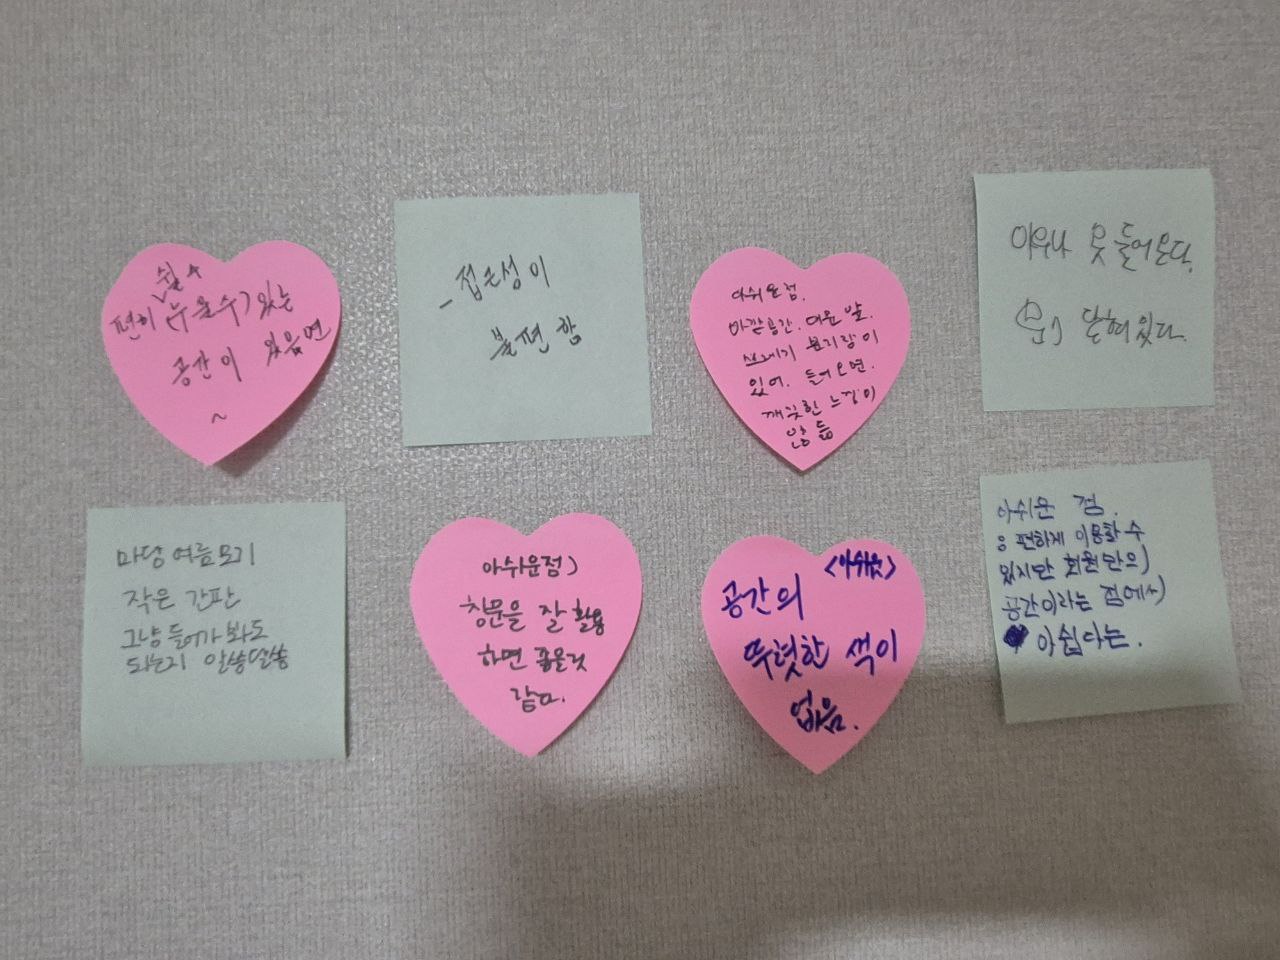 쉴수
편히 (누울수) 있는
공간이 있음면
~
- 접근성이
불편함
아쉬운점.
바깥공간. 더운날.
쓰레기 분지랑이
있어. 들어오면.
깨끗한 느낌이
않듦
아무나 못 들어온다.
문이 닫혀있다.
마당 여름모기
작은 간판
그냥 들어가 봐도
되는지 알쏭달쏭
아쉬운점)
창문을 잘 활용
하면 좋을것
같다.
<아쉬운>
공간의
뚜렷한 색이
없음.
아쉬운 점.
편하게 이용할 수
있지만 회원만의)
공간이라는 점에서)
아쉽다는.